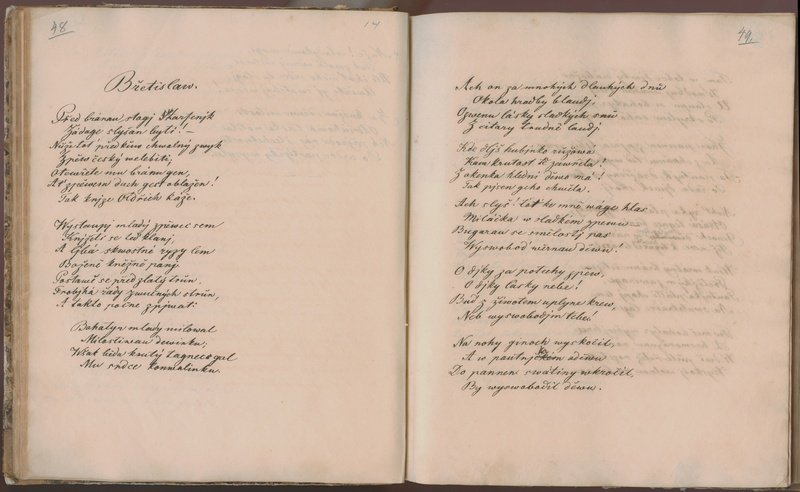 48
Břetislaw.
Před branau stogj Harfenjk
Žádage slyšán byti. —
Nužž tot předkůw chwalný zwyk
Zpěw český welebiti,
Otewřete mu bránu gen,
Ať zpěwem duch gest oblažen!
Tak knjže Oldřich káže.
Wystaupj mladý zpěwec sem
Knjžeti se klanj,
A Gliá skwostné ryzy lem
Boženě kněžně panj
Postawě se před zlatý trůn
Probjhá řady zwučných strůn,
A takto počne zpjwat:
Bohatýr mladý milowal
Milostiwau děwinku,
Wšak běda krutý tagnec wzal
Mu srdce konwalinku.
49.
Ach on za mnohých dlauhých dnů
Okolo hradby blaudj,
Ozwenu lásky sladkých snů
Z citary laudně laudj
Kde dljš hubjnko růžowá
Kam krutost tě zawřela!
Z okenka hledni děwo má!
Tak pjsen geho chwěla.
Ach slyš! let ke mně wage hlas
Miláčka w sladkém zpěwu
Bugarau se smělostj pas
Wyswoboď wěrnau děwu!
O djky za potěchy zpěw,
O djky lásky nebe!
Buď z žiwotem uplyne krew,
Neb wyswobodjm tebe!
Na nohy ginoch wyskočil,
A w pautnjckém oděwu
Do pannen swatiny wkročil,
By wyswobodil děwu.